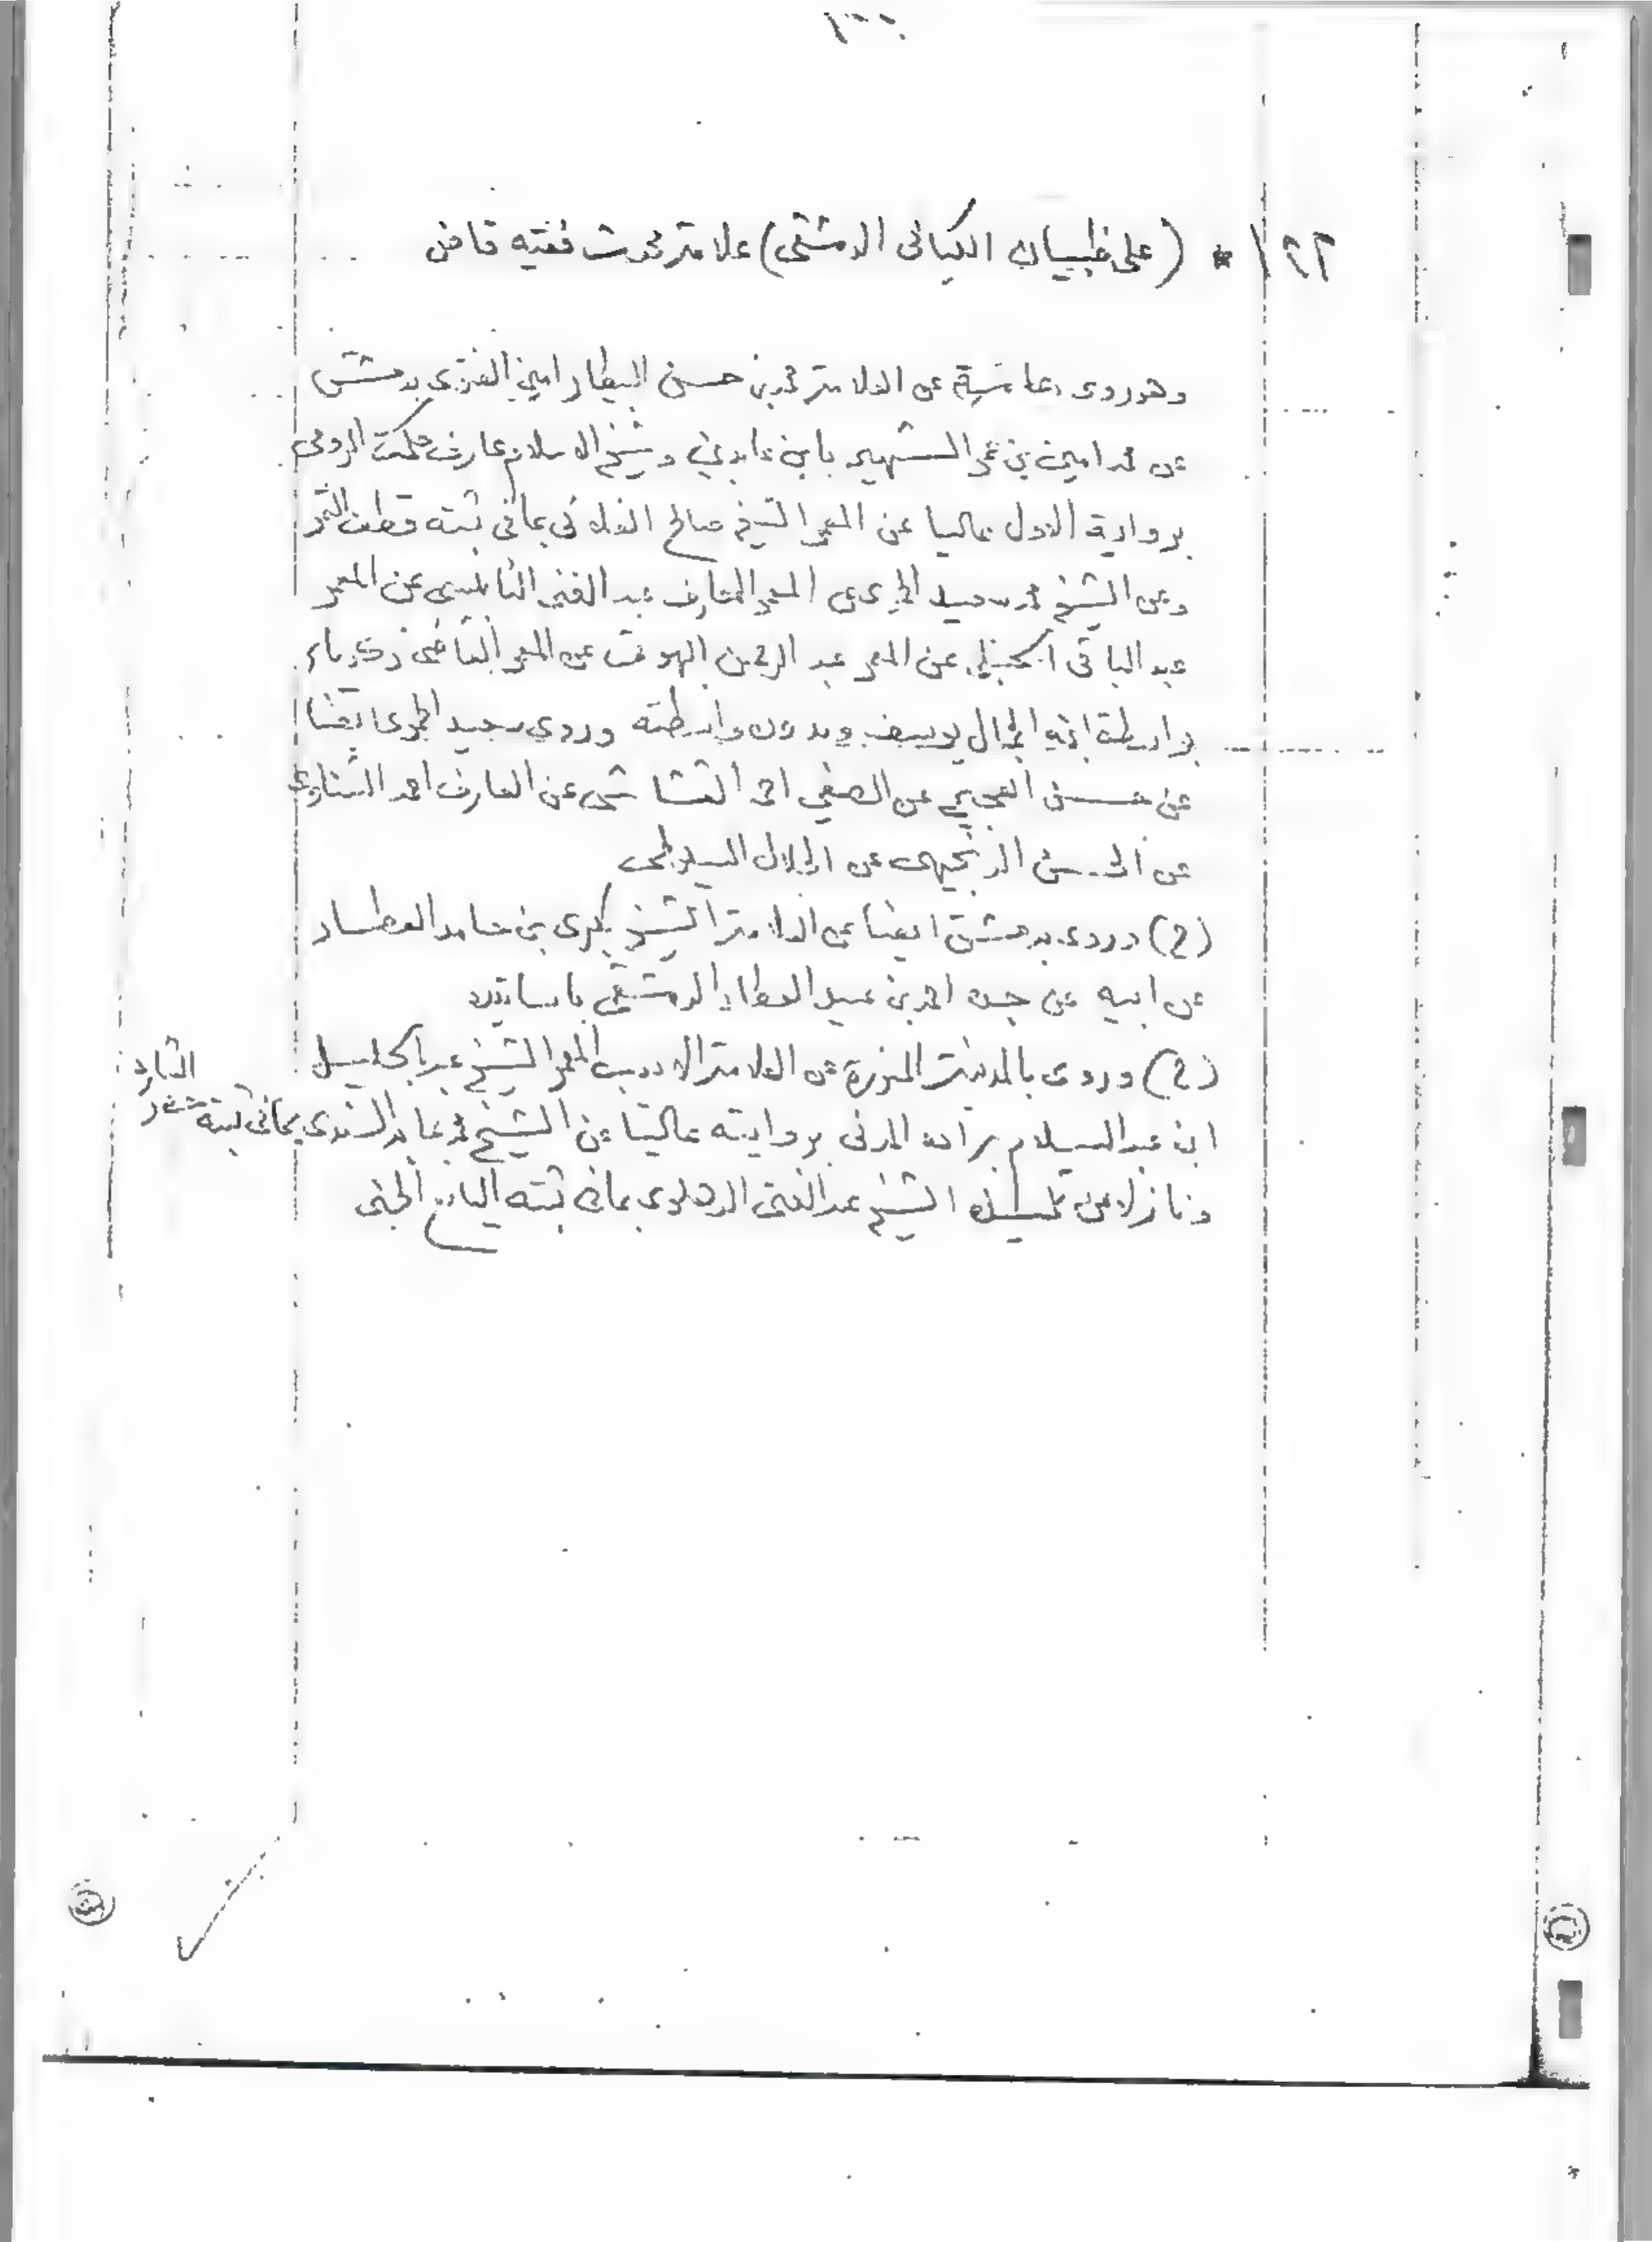 ١٢٢ * (علي ظبيان الكيالى الدمشقى) علامة محدث فقيه قاضى
وهو روى عن العلامة محمد بن حسن البيطار امين الفتوى بدمشق
عن محمد امين بن عمر الشهير بابن عابدين وشيخ الاسلام عارف حكمت الرومى
برواية الاول عاليا عن المعمر الشيخ صالح الفلانى بما فى ثبته قطف الثمر
وعن الشيخ محمد سعيد الحموى المعمر العارف عبد الغنى النابلسى عن المعمر
عبد الباقى الحنبلى عن المعمر عبد الرحمن البهوتى عن المعمر القاضى زكرياء
بواسطة ابنه الجمال يوسف وبدون واسطته وروى سعيد الحموى ايضا
عن حسن العجيمي عن الصفي احمد القشاشى عن العارف احمد الشناوى
عن الحسن الدنجيهى عن الجلال السيوطى
(ح) وروى بدمشق ايضا عن العلامة الشيخ بكرى بن حامد العطار
عن ابيه عن جده احمد بن عبيد العطار الدمشقي باسانيده
(ح) وروى بالمدينة المنورة عن العلامة الاديب المعمر الشيخ عبد الجليل
ابن عبد السلام برادة المدنى بروايته عاليا عن الشيخ محمد عابد السندى بما فى ثبته حصر الشارد
ونازلا عن تلميذه الشيخ عبد الغنى الدهلوى بما فى ثبته اليانع الجنى